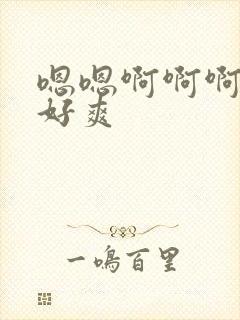 嗯嗯啊啊啊
好爽
一鳴百里